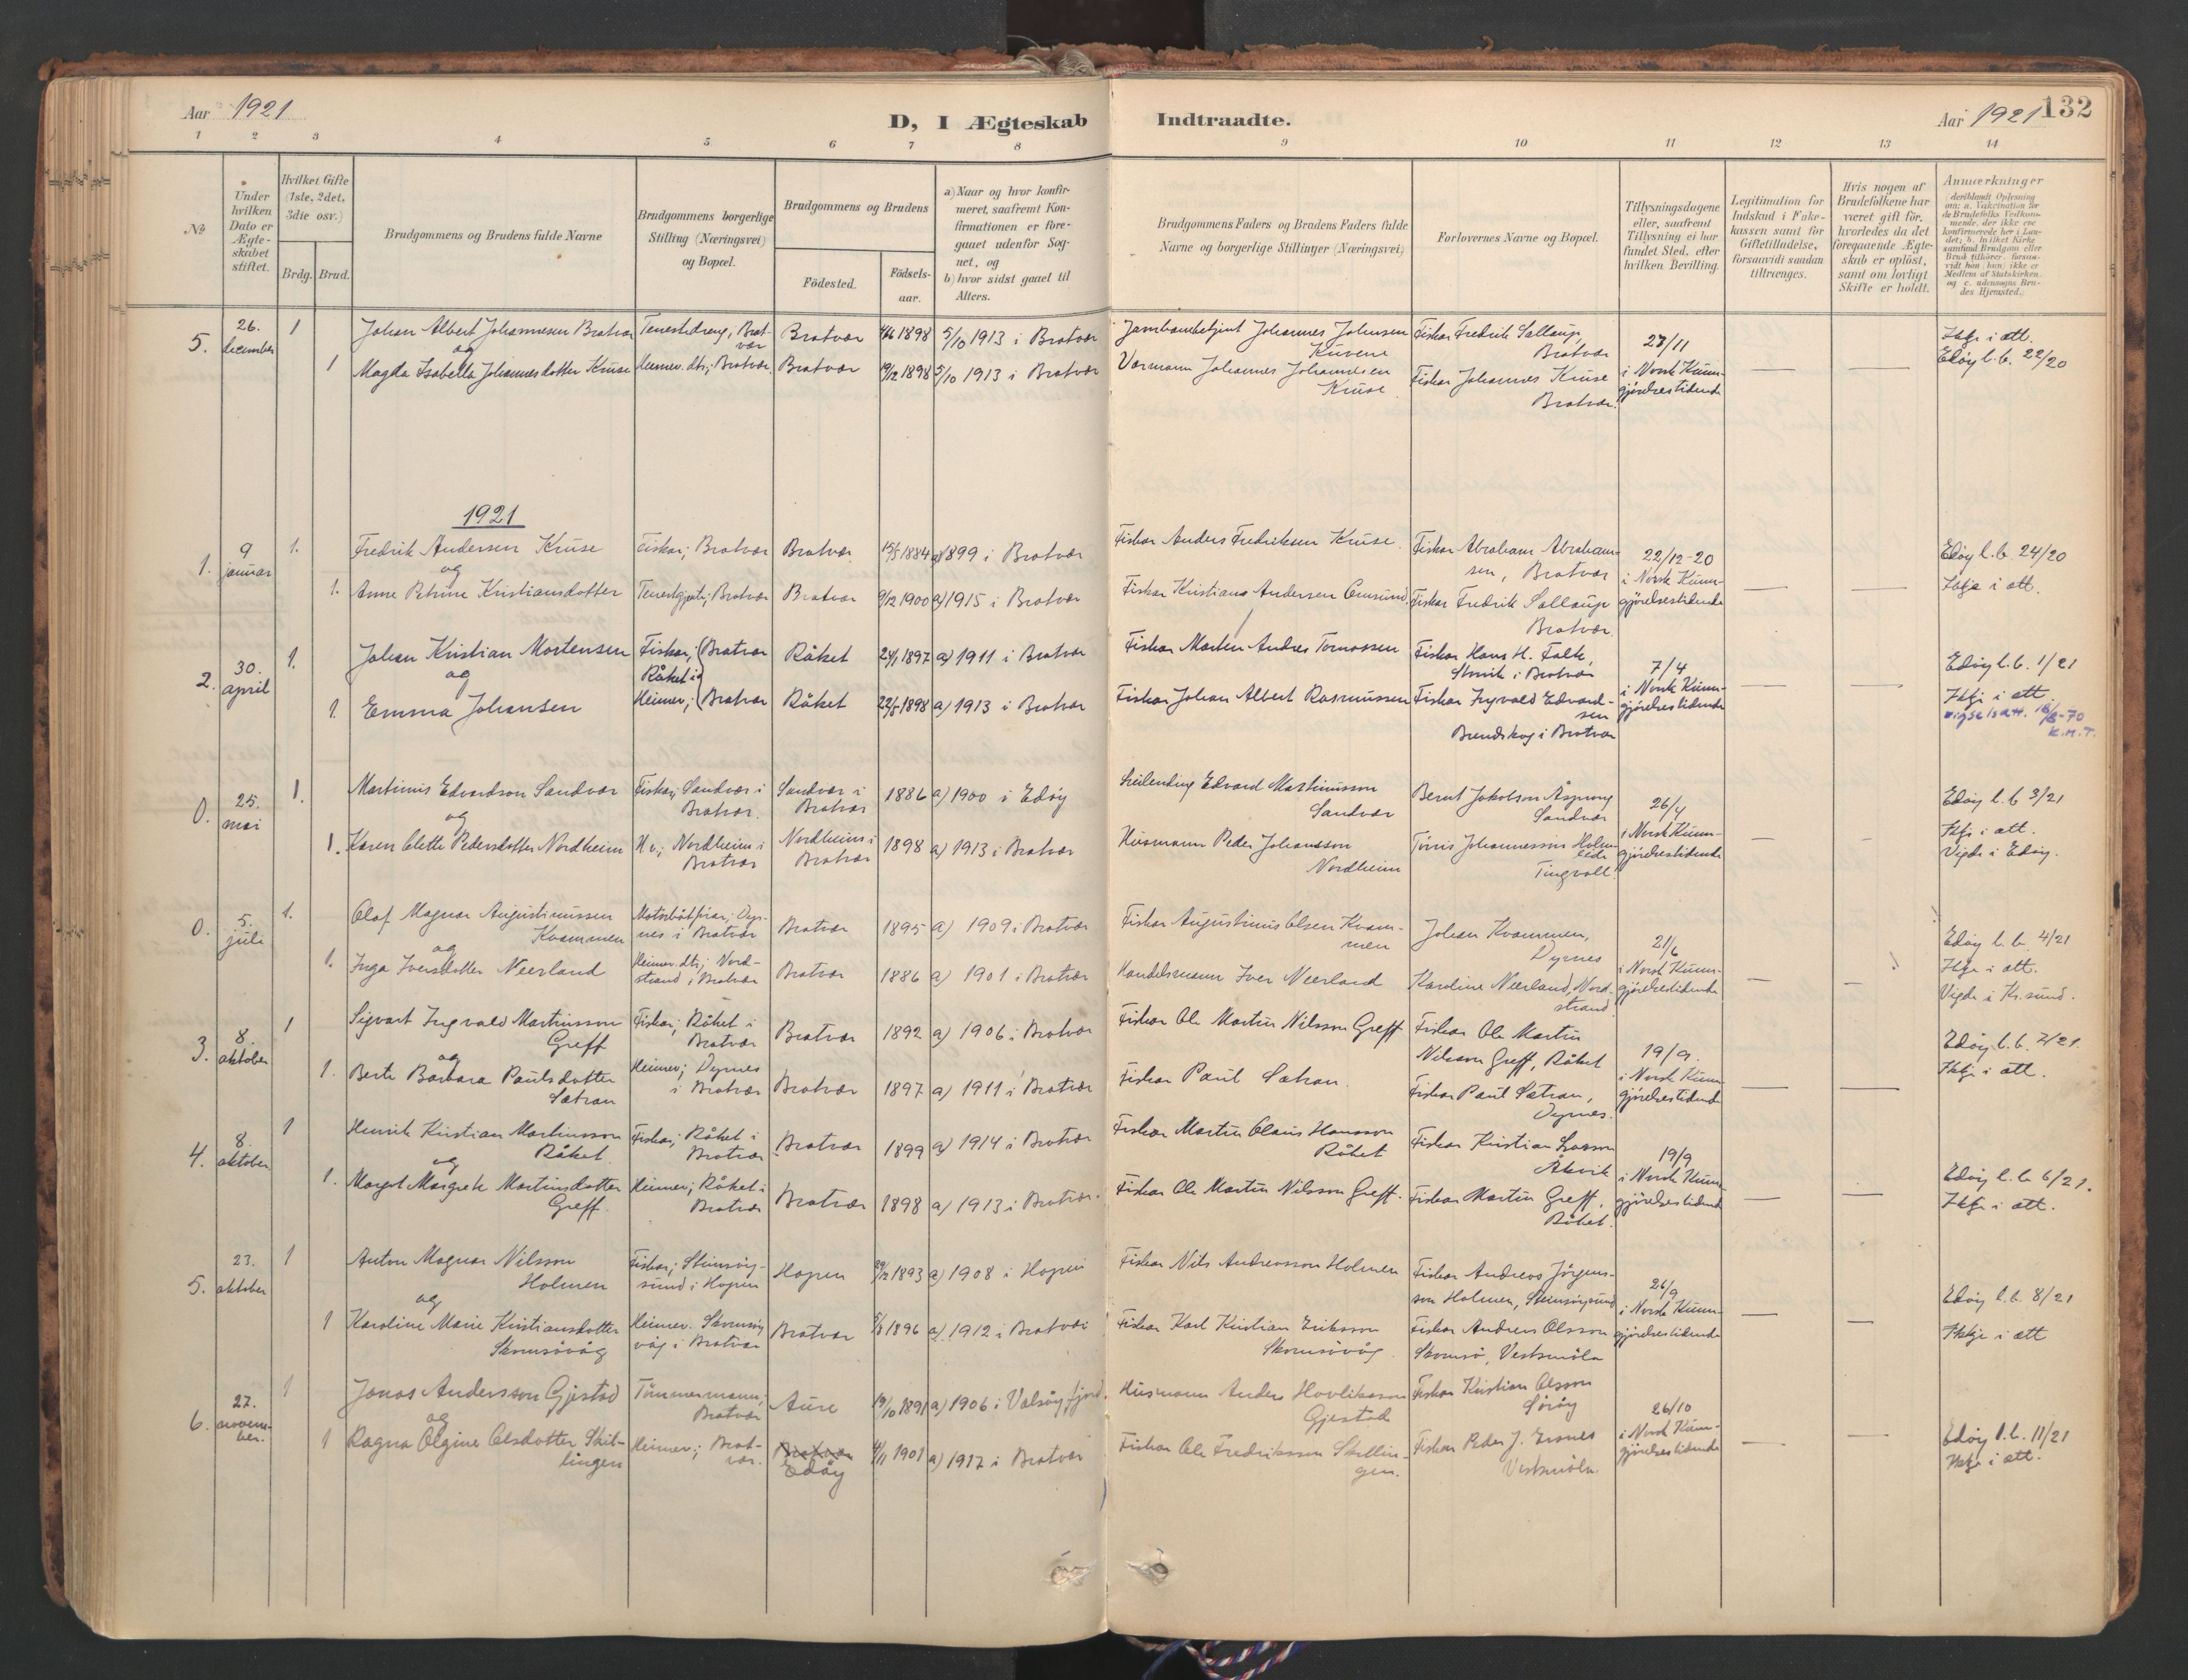 Aar 1921
D, I Ægteskab Indtraadte.
Aar 1921 132
1 2 3 4 5 6 7 8 9 10 11 12 13 14
№
Under hvilken Dato er Ægteskabet stiftet.
Hvilket Gifte (1ste, 2det, 3die osv.)
Brdg. Brud.
Brudgommens og Brudens fulde Navne
Brudgommens borgerlige Stilling (Næringsvei) og Bopæl.
Brudgommens og Brudens
Fødested. Fødselsaar.
a) Naar og hvor konfirmeret, saafremt Konfirmationen er foregaaet udenfor Sognet, og
b) hvor sidst gaaet til Alters.
Brudgommens Faders og Brudens Faders fulde Navne og borgerlige Stillinger (Næringsvei)
Forlovernes Navne og Bopæl.
Tillysningsdagene eller, saafremt Tillysning ei har fundet Sted, efter hvilken Bevilling.
Legitimation for Indskud i Enkekassen samt for Giftetilladelse, forsaavidt saadan tiltrænges.
Hvis nogen af Brudefolkene har været gift før, hvorledes da det foregaaende Ægteskab er opløst, samt om lovligt Skifte er holdt.
Anmærkninger
5. 26. december
1 Johan Albert Johannesen Bratvær Tenestedreng, Bratvær Bratvær 1898 5/10 1913 i Bratvær
Johannes Johnsen Kuvene
Fiskar Fredrik Sollaup, Bratvær
27/11 i Norsk Kunngjørelsestidende
Ikkje i ætt. Edøy l.b. 22/20
og
1 Magda Isabella Johannesdotter Kruse Heimev. dtr; Bratvær. Bratvær 19/12 1898 5/10 1913 i Bratvær
Johannes Johannesen Kruse
Fiskar Johannes Kruse Bratvær.
1921
1. 9 januar
1. Fredrik Andersen Kruse Fiskar; Bratvær Bratvær 15/5 1884 a) 1899 i Bratvær
Fiskar Anders Fredriksen Kruse.
Fiskar Abraham Abrahamsen, Bratvær
22/12-20 i Norsk Kunngjørelsestidende
Edøy l.b 24/20 Ikkje i ætt.
og
1. Anne Petrine Kristiansdotter Bratvær Bratvær 9/12 1900 a) 1915 i Bratvær
Fiskar Kristians Andersen Omsund
Fiskar Fredrik Sollaup Bratvær.
2. 30. april
1. Johan Kristian Mortensen Fiskar; Råket i Bratvær Råket 24/1 1897 a) 1911 i Bratvær
Fiskar Morten Andres Tomassen
Fiskar Hans H. Falk, i Bratvær
7/4 i Norsk Kunngjørelsestidende
Edøy l.b. 1/21
og
1. Emma Johansen Heimev; Bratvær Råket 22/5 1898 a) 1913 i Bratvær
Fiskar Johan Albert Rasmussen
Fiskar Ingvald Edvardsen Brendskog i Bratvær
Ikkje i ætt.
vigselsatt. 18/8-70 K.M.T.
0. 25. mai
1. Martinus Edvardson Sandvær Fiskar; Sandvær i Bratvær. Sandvær i Bratvær 1886 a) 1900 i Edøy
Leilending Edvard Martinusson Sandvær
Bernt Jakobson Aspnong Sandvær
26/4 i Norsk Kunngjørelsestidende
Edøy l.b 3/21 Ikkje i ætt. Vigde i Edøy.
og
1. Karen Olette Pedersdotter Nordheim H.v; Nordheim i Bratvær Nordheim i Bratvær 1898 a) 1913 i Bratvær
Husmann Peder Johansson Nordheim
Tørris Johannesson Tingvoll.
0. 5. juli
1. Olaf Magnar Augustinussen Kvammen Dyrnes i Bratvær Bratvær 1895 a) 1909 i Bratvær
Fiskar Augustinus Olsen Kvammen
Johan Kvammen, Dyrnes
21/6 i Norsk Kunngjørelsestidende
Edøy l.b. 4/21 Ikkje i ætt. Vigde i Kr.sund.
og
1. Inga Iversdotter Neerland Heimev. dtr; Nordstrand, Bratvær Bratvær 1886 a) 1901 i Bratvær
Handelsmann Iver Neerland
Karoline Neerland, Nordstrand.
3. 8. oktober
1 Sigvart Ingvald Martinsson Greff Fiskar; Råket i Bratvær Bratvær 1892 a) 1906 i Bratvær
Fiskar Ole Martin Nilsson Greff
Fiskar Ole Martin Nilsson Greff, Råket
19/9. i Norsk Kunngjørelsestidende
Edøy l.b. 7/21. Ikkje i ætt.
og
1. Berte Barbara Paulsdotter Sætran Heimev; Dyrnes i Bratvær Bratvær 1897 a) 1911 i Bratvær
Fiskar Paul Sætran.
Fiskar Paul Sætran, Dyrnes.
4. 8. oktober
1 Henrik Kristian Martinsson Råket. Fiskar; Råket i Bratvær Bratvær 1899 a) 1914 i Bratvær
Fiskar Martin Claus Hansson Råket
Fiskar Kristian Larsson Åkvik
19/9 i Norsk Kunngjørelsestidende
Edøy l.b 6/21. Ikkje i ætt.
og
1. Margot Margrete Martinsdotter Greff. Heimev; Råket i Bratvær Bratvær 1898 a) 1913 i Bratvær.
Fiskar Ole Martin Nilsson Greff.
Fiskar Martin Greff, Råket.
5. 23. oktober
1 Anton Magnar Nilsson Holmen Fiskar; Steinsøysund i Hopen Hopen 29/12 1893 a) 1908 i Hopen
Fiskar Nils Andreasson Holmen
Fiskar Andreas Jørgensson Holmen, Steinsøysund
26/9 i Norsk Kunngjørelsestidende
Edøy l.b. 8/21 Ikkje i ætt
og
1 Karoline Marie Kristiansdotter Skomsøvåg Heimev. Skomsøyvåg i Bratvær Bratvær 1896 a) 1912 i Bratvær
Fiskar Karl Kristian Eriksson Skomsøvåg.
Fiskar Andreas Olsson Skomsø, Vestsmøla
6. 27. november.
1 Jonas Andersson Gjestad Tømmermann; Bratvær Aure 19/10 1891 a) 1906 i Valsøyfjord.
Husmann Anders Gjestad
Fiskar Kristian Olsson Sørøy
26/10 i Norsk Kunngjørelsestidende
Edøy l.b. 11/21 Ikkje i ætt.
og
1 Ragna Olgine Olsdotter Skillingen Heimev; Bratvær. Bratvær Edøy 4/11 1901 a) 1917 i Bratvær
Fiskar Ole Fredriksson Skillingen.
Fiskar Peder J. Ersnes Vestsmøla.